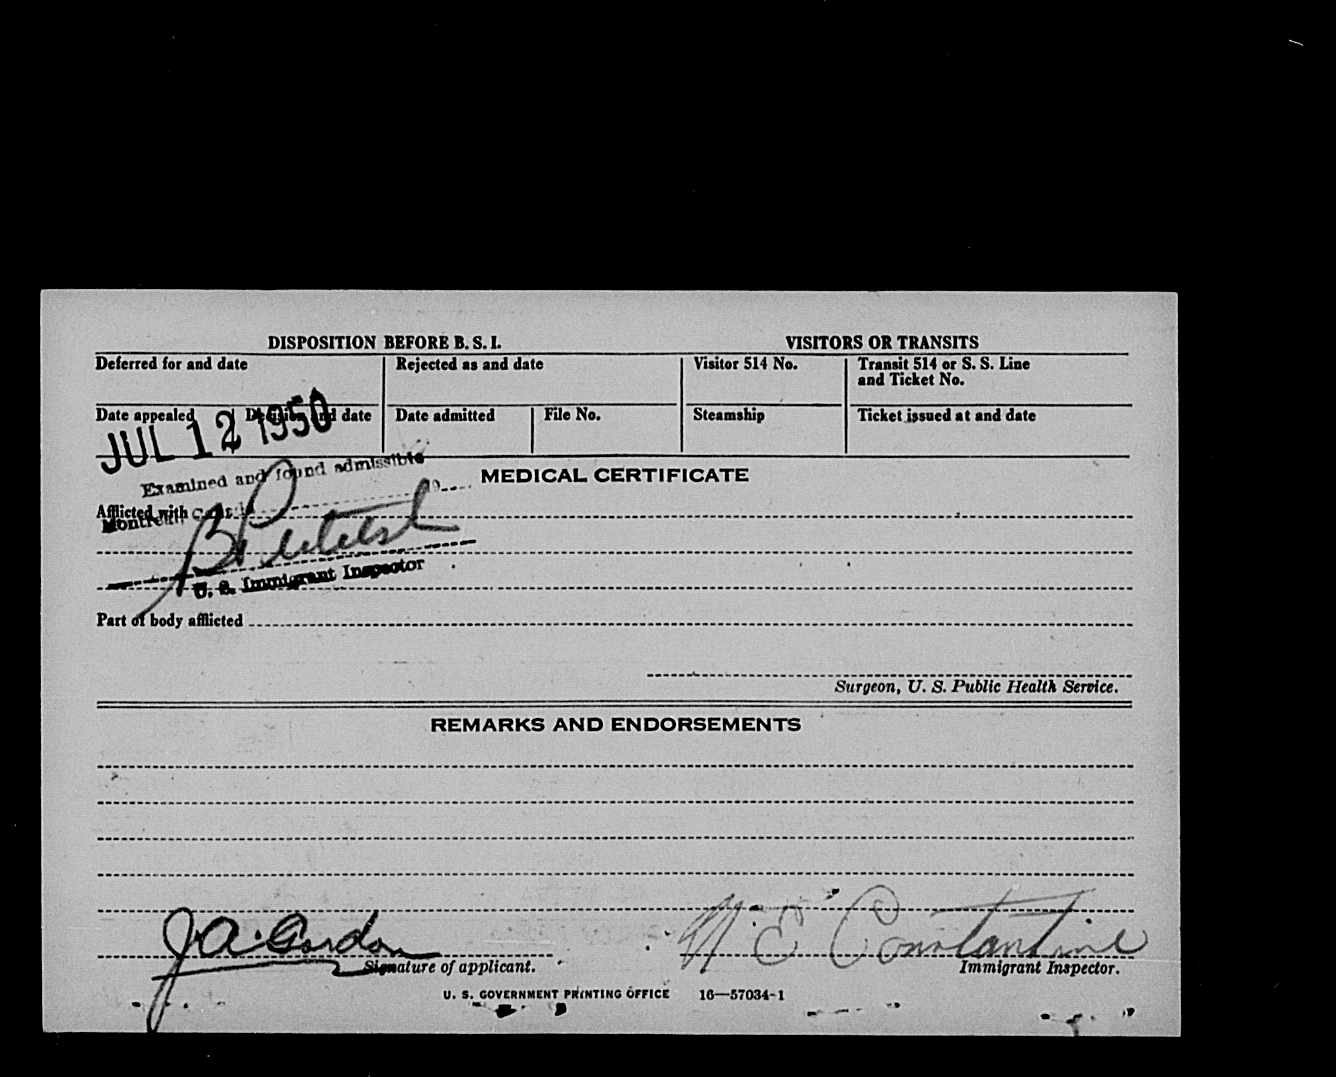 DISPOSITION BEFORE B. S. I.
VISITORS OR TRANSITS
Deferred for and date
Rejected as and date
Visitor 514 No.
Transit 514 or S. S. Line
and Ticket No.
Date appealed
Decision and date
Date admitted
File No.
Steamship
Ticket issued at and date
JUL 12 1950
Examined and found admissible
MEDICAL CERTIFICATE
Afflicted with
Montreal,
U. S. Immigrant Inspector
Part of body afflicted
Surgeon, U. S. Public Health Service.
REMARKS AND ENDORSEMENTS
J.A. Gordon
N. E. Constantine
Signature of applicant.
Immigrant Inspector.
U. S. GOVERNMENT PRINTING OFFICE 16—57034-1